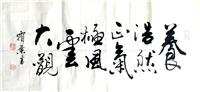 養
浩然
正氣
極風
雲
大觀